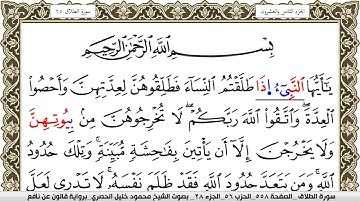 الجزء الثامن والعشرون
سورة الطلاق ٦٥
بِسْمِ اللَّهِ الرَّحْمَٰنِ الرَّحِيمِ
يَٰٓأَيُّهَا ٱلنَّبِيٓءُ اِ۪ذَا طَلَّقْتُمُ ٱلنِّسَآءَ فَطَلِّقُوهُنَّ لِعِدَّتِهِنَّ وَأَحْصُوا۟
ٱلْعِدَّةَ وَٱتَّقُوا۟ ٱللَّهَ رَبَّكُمْ لَا تُخْرِجُوهُنَّ مِنۢ بِيُوتِهِنَّ
وَلَا يَخْرُجْنَ إِلَّآ أَنْ يَأْتِينَ بِفَٰحِشَةٍ مُّبَيِّنَةٍ وَتِلْكَ حُدُودُ
ٱللَّهِ وَمَنْ يَتَعَدَّ حُدُودَ ٱللَّهِ فَقَدْ ظَلَمَ نَفْسَهُۥ لَا تَدْرِى لَعَلَّ
سورة الطلاق_ الصفحة ٥٥٨_ الحزب ٥٦_ الجزء ٢٨_ بصوت الشيخ محمود خليل الحصري_ برواية قالون عن نافع